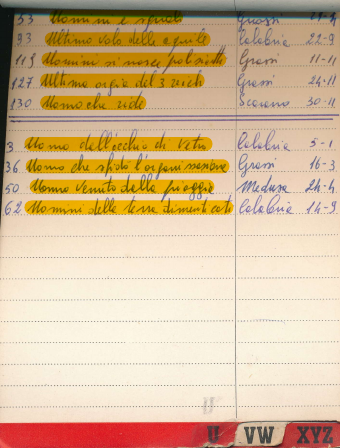 53 Uomini e squali Grassi 29-4
93 Ultimo volo delle aquile Calabria 22-9
119 Uomini si nasce poliziotti Grassi 11-11
127 Ultima orgia del 3 reich Grassi 24-11
130 Uomo che ride Scarano 30-11
3 Uomo dall'occhio di vetro Calabria 5-1
36 Uomo che sfidò l'organizzazione Grassi 16-3
50 Uomo venuto dalla pioggia Medusa 24-4
62 Uomini della terra dimenticata Calabria 14-9
U
U VW XYZ